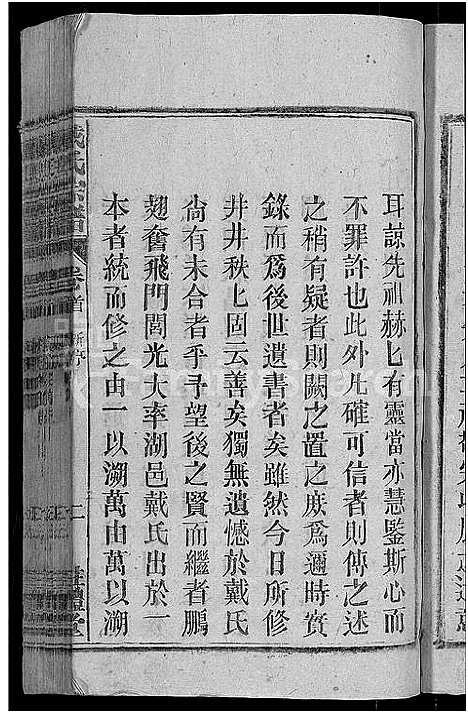 耳諒先祖赫匕有靈當亦慧鑒斯心而
不罪許也此外凡確可信者則傳之述
之稍有疑者則闕之置之庻爲邇時實
錄而爲後世遺書者矣雖然今日所修
井井秩匕固云善矣獨無遺憾於戴氏
尙有未合者乎予望後之賢而繼者鵬
翅奮飛門閭光大率湖邑戴氏出於一
本者統而修之由一以溯萬由萬以溯
戴氏宗譜
卷首
新序
二